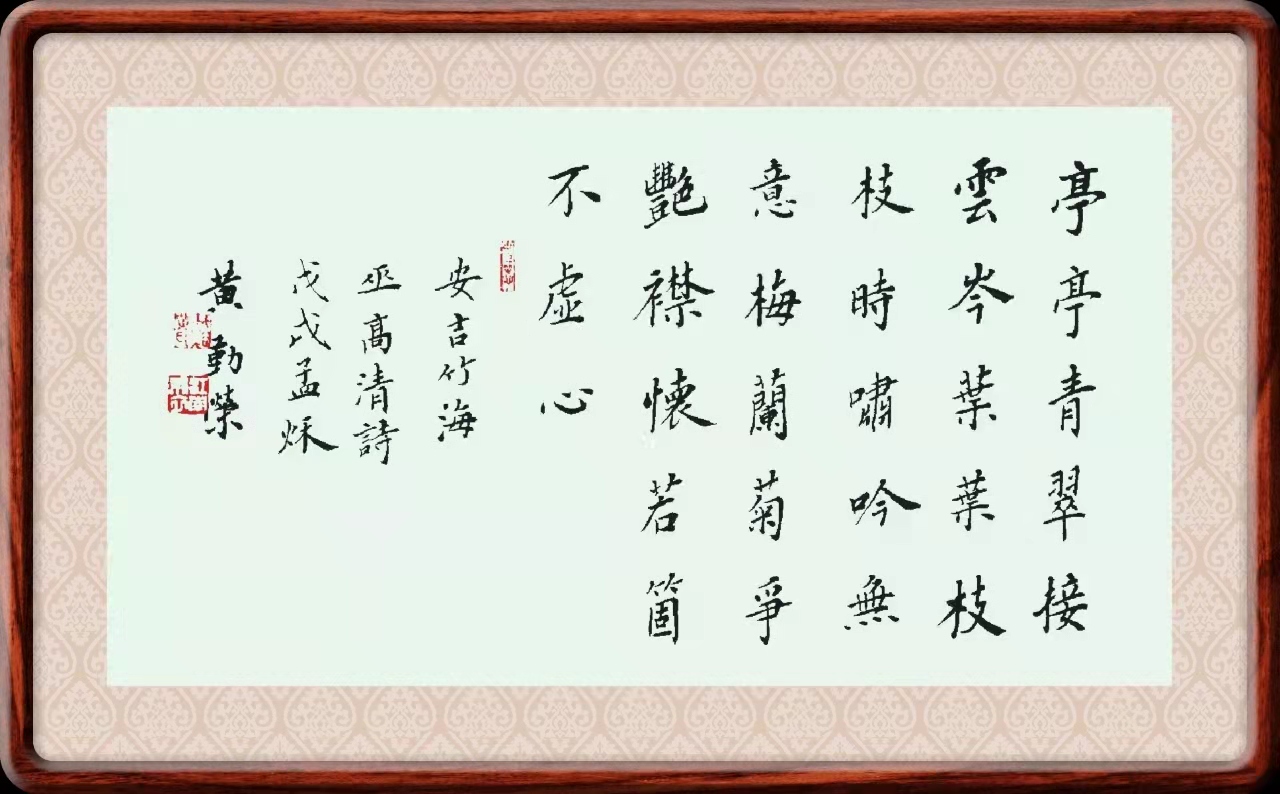 亭亭青翠接
雲岑葉葉枝
枝時嘯吟無
意梅蘭菊爭
艷襟懷若箇
不虛心
安吉竹海
巫高清詩
戊戌孟秌
黃勤榮